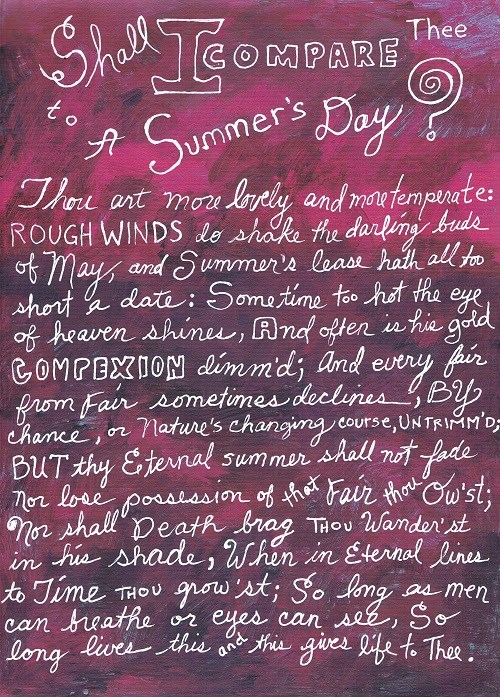 Shall I COMPARE Thee
to A Summer's Day?
Thou art more lovely and more temperate:
ROUGH WINDS do shake the darling buds
of May, and Summer's lease hath all too
short a date: Sometime too hot the eye
of heaven shines, And often is his gold
COMPEXION dimm'd; And every fair
from Fair sometimes declines, BY
chance, or Nature's changing course, UNTRIMM'D;
BUT thy Eternal summer shall not fade
Nor lose possession of that Fair thou Ow'st;
Nor shall Death brag THOU Wander'st
in his shade, When in Eternal lines
to Time THOU grow'st; So long as men
can breathe or eyes can see, So
long lives this and this gives life to Thee.